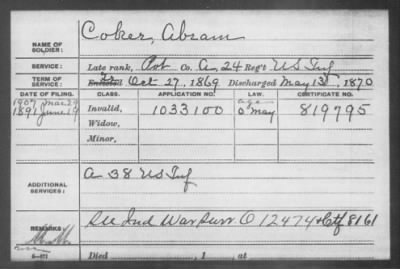 Coker, Abram
NAME OF SOLDIER:
SERVICE: Late rank, Pvt Co. A, 24 Reg't US Inf
TERM OF SERVICE: Enlisted Oct 27, 1869 Discharged May 13, 1870
DATE OF FILING. CLASS. APPLICATION NO. LAW. CERTIFICATE NO.
1907 Mar 29 age
1891 June 19 Invalid, 1033100 May 819795
Widow,
Minor,
ADDITIONAL SERVICES: A 38 US Inf
REMARKS: See Ind War Surv. O 12474 & Ctf 8161
Died , 1 , at